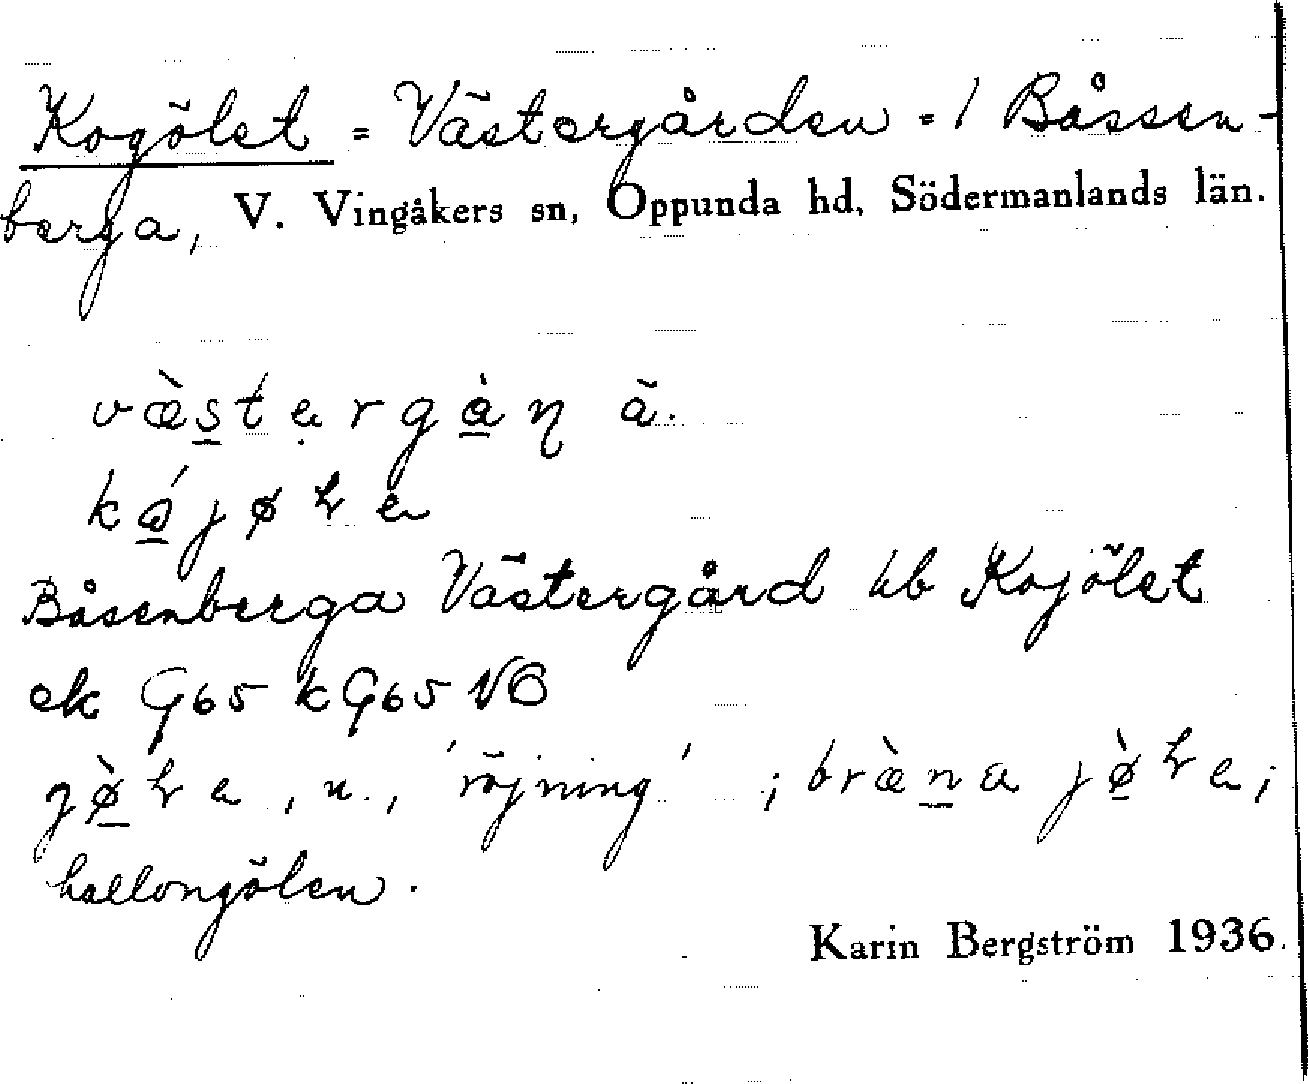 Kogölet = Västergården = / Båssen-
berga, V. Vingåkers sn, Oppunda hd, Södermanlands län.
væ̀s̲tẹrgà̲ŋ ä.
Båsenberga Västergård kb Kojölet
ek G65 k G65 NO
, n., 'röjning' ;
hallongölen.
Karin Bergström 1936.